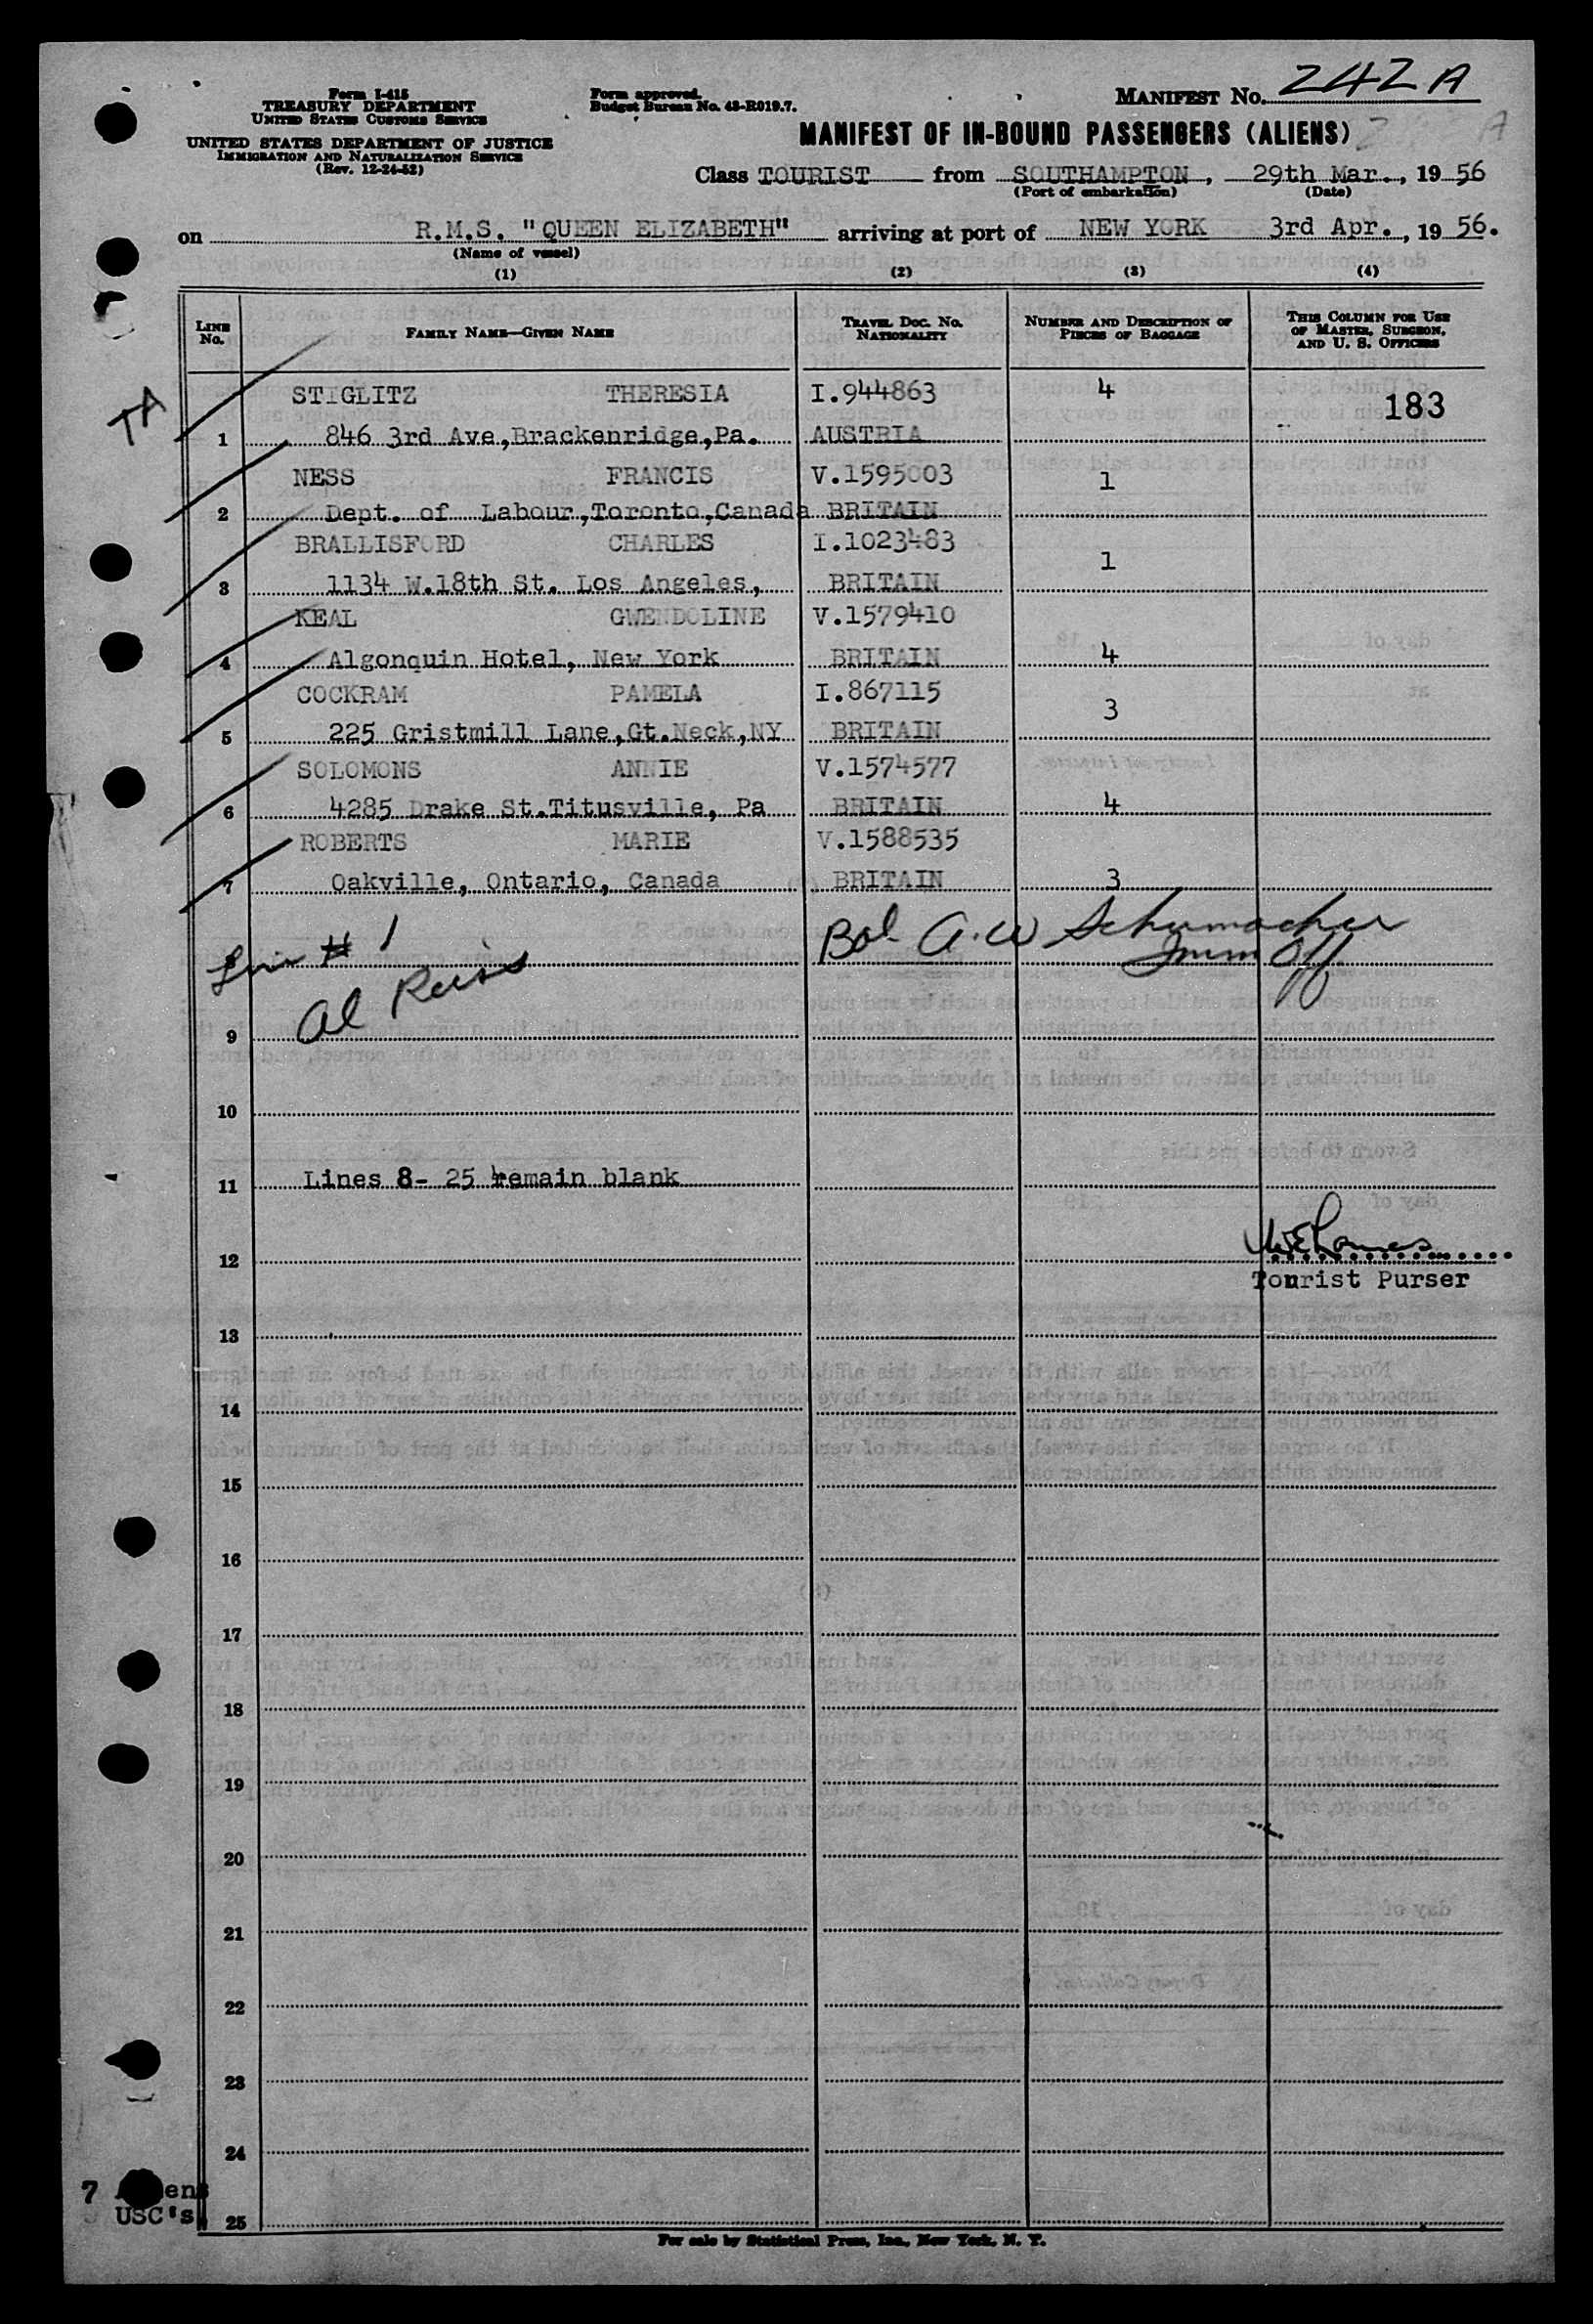 Form I-415
TREASURY DEPARTMENT
UNITED STATES CUSTOMS SERVICE
UNITED STATES DEPARTMENT OF JUSTICE
IMMIGRATION AND NATURALIZATION SERVICE
(Rev. 12-24-52)
Form approved.
Budget Bureau No. 43-R019.7.
MANIFEST NO. 242 A
MANIFEST OF IN-BOUND PASSENGERS (ALIENS)
Class TOURIST from SOUTHAMPTON, 29th Mar., 19 56
(Port of embarkation) (Date)
on R.M.S. "QUEEN ELIZABETH" arriving at port of NEW YORK 3rd Apr., 19 56.
(Name of vessel)
(1) (2) (3) (4)
LINE No. FAMILY NAME—GIVEN NAME TRAVEL DOC. NO. NATIONALITY NUMBER AND DESCRIPTION OF PIECES OF BAGGAGE THIS COLUMN FOR USE OF MASTER, SURGEON, AND U. S. OFFICERS
TA
STIGLITZ THERESIA I.944863 4 183
1 846 3rd Ave,Brackenridge,Pa. AUSTRIA
NESS FRANCIS V.1595003 1
2 Dept. of Labour,Toronto,Canada BRITAIN
BRALLISFORD CHARLES I.1023483 1
3 1134 W.18th St. Los Angeles, BRITAIN
KEAL GWENDOLINE V.1579410
4 Algonquin Hotel, New York BRITAIN 4
COCKRAM PAMELA I.867115 3
5 225 Gristmill Lane,Gt.Neck,NY BRITAIN
SOLOMONS ANNIE V.1574577
6 4285 Drake St.Titusville, Pa BRITAIN 4
ROBERTS MARIE V.1588535
7 Oakville, Ontario, Canada BRITAIN 3
Line # 1 Bal A.W Schumacher
Imm Off
Al Reiss
9
10
11 Lines 8- 25 remain blank
12
Tourist Purser
13
14
15
16
17
18
19
20
21
22
23
24
7 Aliens
USC's
25
For sale by Statistical Press, Inc., New York, N. Y.